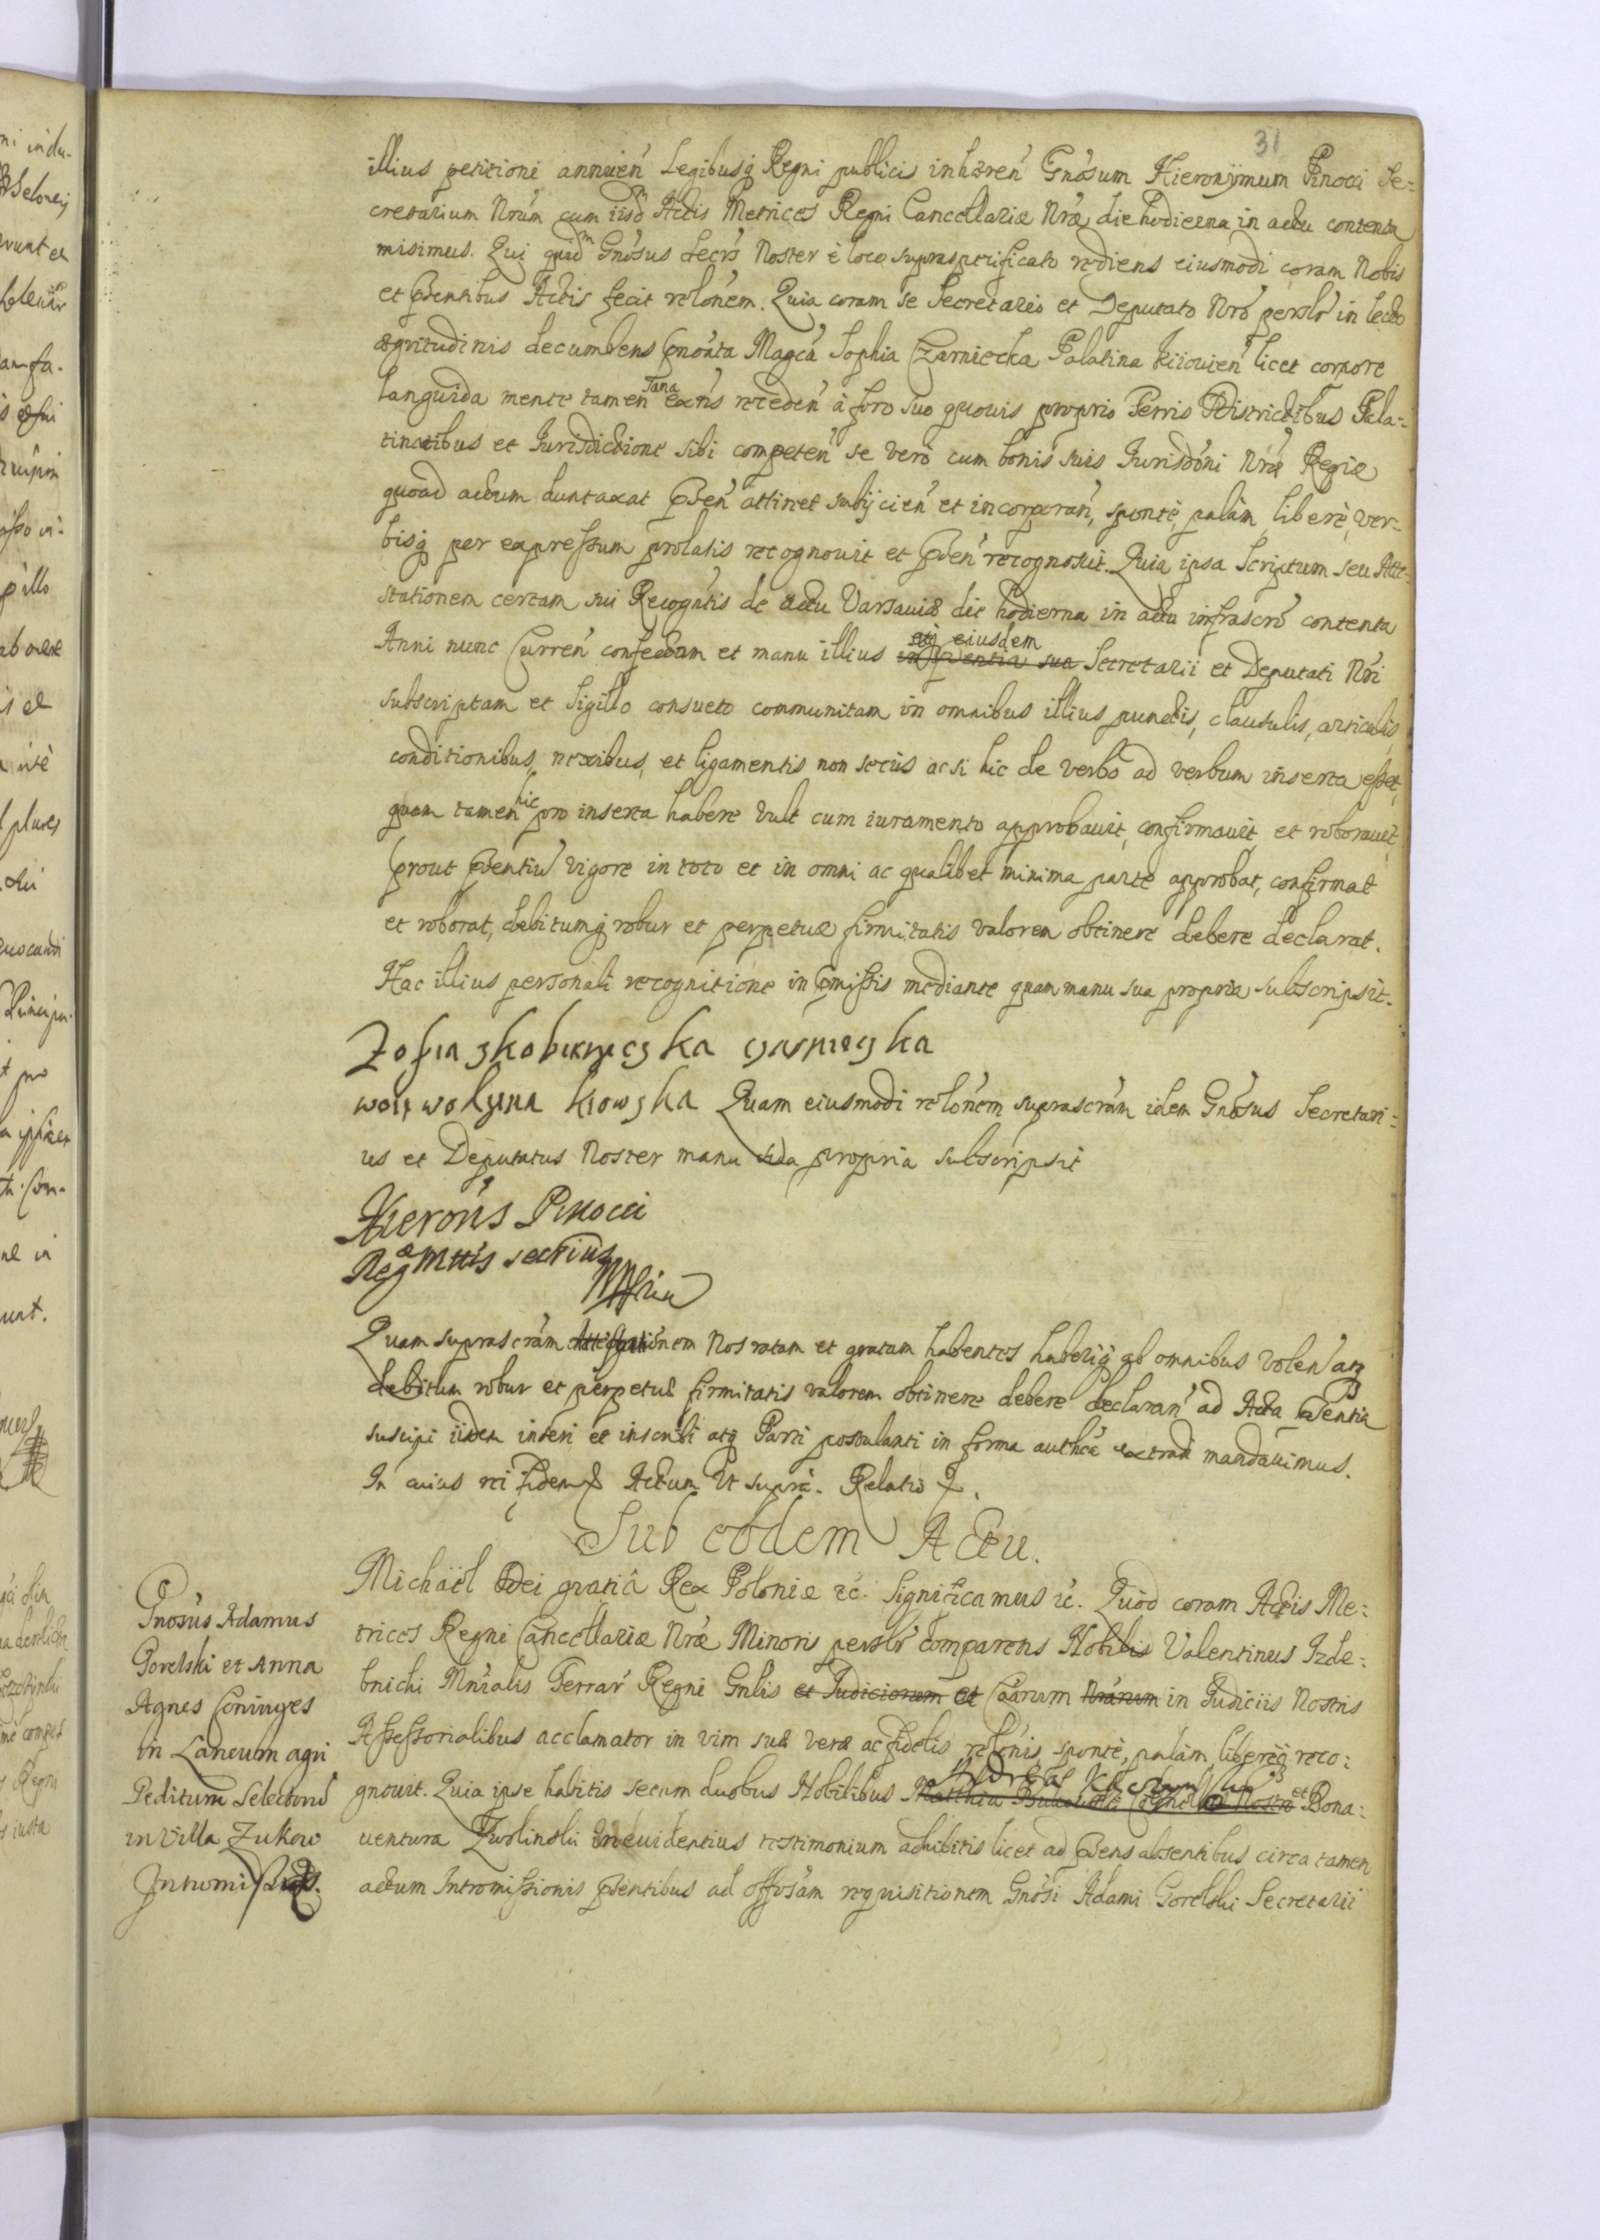 31
illius petitioni annuen̕ Legibusq̃ Regni publicis inhæren̕ Gnõsum Hieronÿmum Pinocci Se-
cretarium Nrũm cum iisd̃ Actis Metrices Regni Cancellariæ Nræ̃ die hodierna in actu contenta
misimus. Qui quidm̃ Gnõsus Secrũs Noster è loco supraspecificato rediens eiusmodi coram Nobis
et Pñtibus Actis fecit relõnem. Quia coram se Secretario et Deputato Nrõ persłr̃ in lecto
ægritudinis decumbens Pnõta Magcã Sophia Czarniecka Palatina Kiiovien̕ licet corpore
languida mente tamen sana exñs receden̕ à foro suo quovis proprio Terris Districtibus Pala-
tinatibus et Jurisdictione sibi competen̕ se verò cum bonis suis Jurisdõni Nræ̃ Regiæ
quoad actum duntaxat Pñen̕ attinet subÿcien̕ et incorporan̕, spontè, palàm liberè, ver-
bisq̃ per expressum prolatis recognovit et Pñen̕ recognoscit. Quia ipsa Scriptum seu Atte-
stationem certam sui Recogñtis de actu Varsaviæ die hodierna in actu infrascrõ contenta
Anni nunc Curren̕ confectam et manu illius
atq̃ eiusdem
in pñentia sua Secretarii et Deputati Nrĩ
subscriptam et Sigillo consueto communitam in omnibus illius punctis, clausulis, articulis,
conditionibus, nexibus, et ligamentis non secùs ac si hic de verbo ad verbum inserta esset,
quam tamen hic pro inserta habere vult cum iuramento approbavit, confirmavit, et roboravit,
prout Pñentiũ vigore in toto et in omni ac qualibet minima parte approbat, confirmat
et roborat, debitumq̃ robur et perpetuæ firmitatis valorem obtinere debere declarat.
Hac illius personali recognitione in Pmissis mediante quam manu sua propria subscripsit.
Zofia zkobierzyczka czarnieczka
woiewodzyna kiowzka Quam eiusmodi relõnem suprascrãm idem Gnõsus Secretari-
us et Deputatus Noster manu sua propria subscripsit
Hierõnis Pinocci
Regæ Mttis secrius
Quam suprascrãm Attestatiõnem Nos ratam et gratam habentes haberiq̃ ab omnibus volen̕ atq̃
debitum robur et perpetuæ firmitatis valorem obtinere debere declaran̕ ad Acta Pñentia
suscipi iisdem inseri et inscribi atq̃ Parti postulanti in forma authcã extradi mandavimus.
In cuius rei fidem Actum Ut suprà. Relatio
Sub eodem Actu.
Michäel Dei gratiâ Rex Poloniæ ꝛc. Significamus ꝛc. Quòd coram Actis Me-
trices Regni Cancellariæ Nræ̃ Minoris persłr̃ comparens Nobilis Valentinus Izde-
bnicki Mnrĩalis Terrar̃ Regni Gnlĩs et Judiciorum et Cãrum Nrãrum in Judiciis Nostris
Assessorialibus acclamator in vim suæ veræ ac fidelis relõnis, spontè, palàm, liberèq̃ reco-
gnovit. Quia ipse habitis secum duobus Nobilibus et Bona-
ventura Zwolinski in evidentius testimonium adhibitis licet ad Pñens absentibus circa tamen
actum Intromissionis pñentibus ad offosãm requisitionem Gnõsi Adami Gorelski Secretarii
Gnosũs Adamus
Gorelski et Anna
Agnes Coninges
in Laneum agri
Peditum Selectorũ
in Villa Zukow
Intromissio.